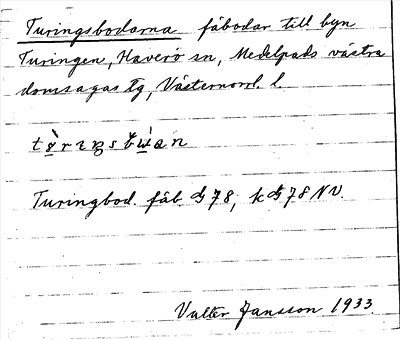 Turingsbodarna fäbodar till byn
Turingen, Haverö sn, Medelpads västra
domsagas tg, Västernorrl. l.
Turingbod. fäb. 78, k 78 NV.
Valter Jansson 1933.